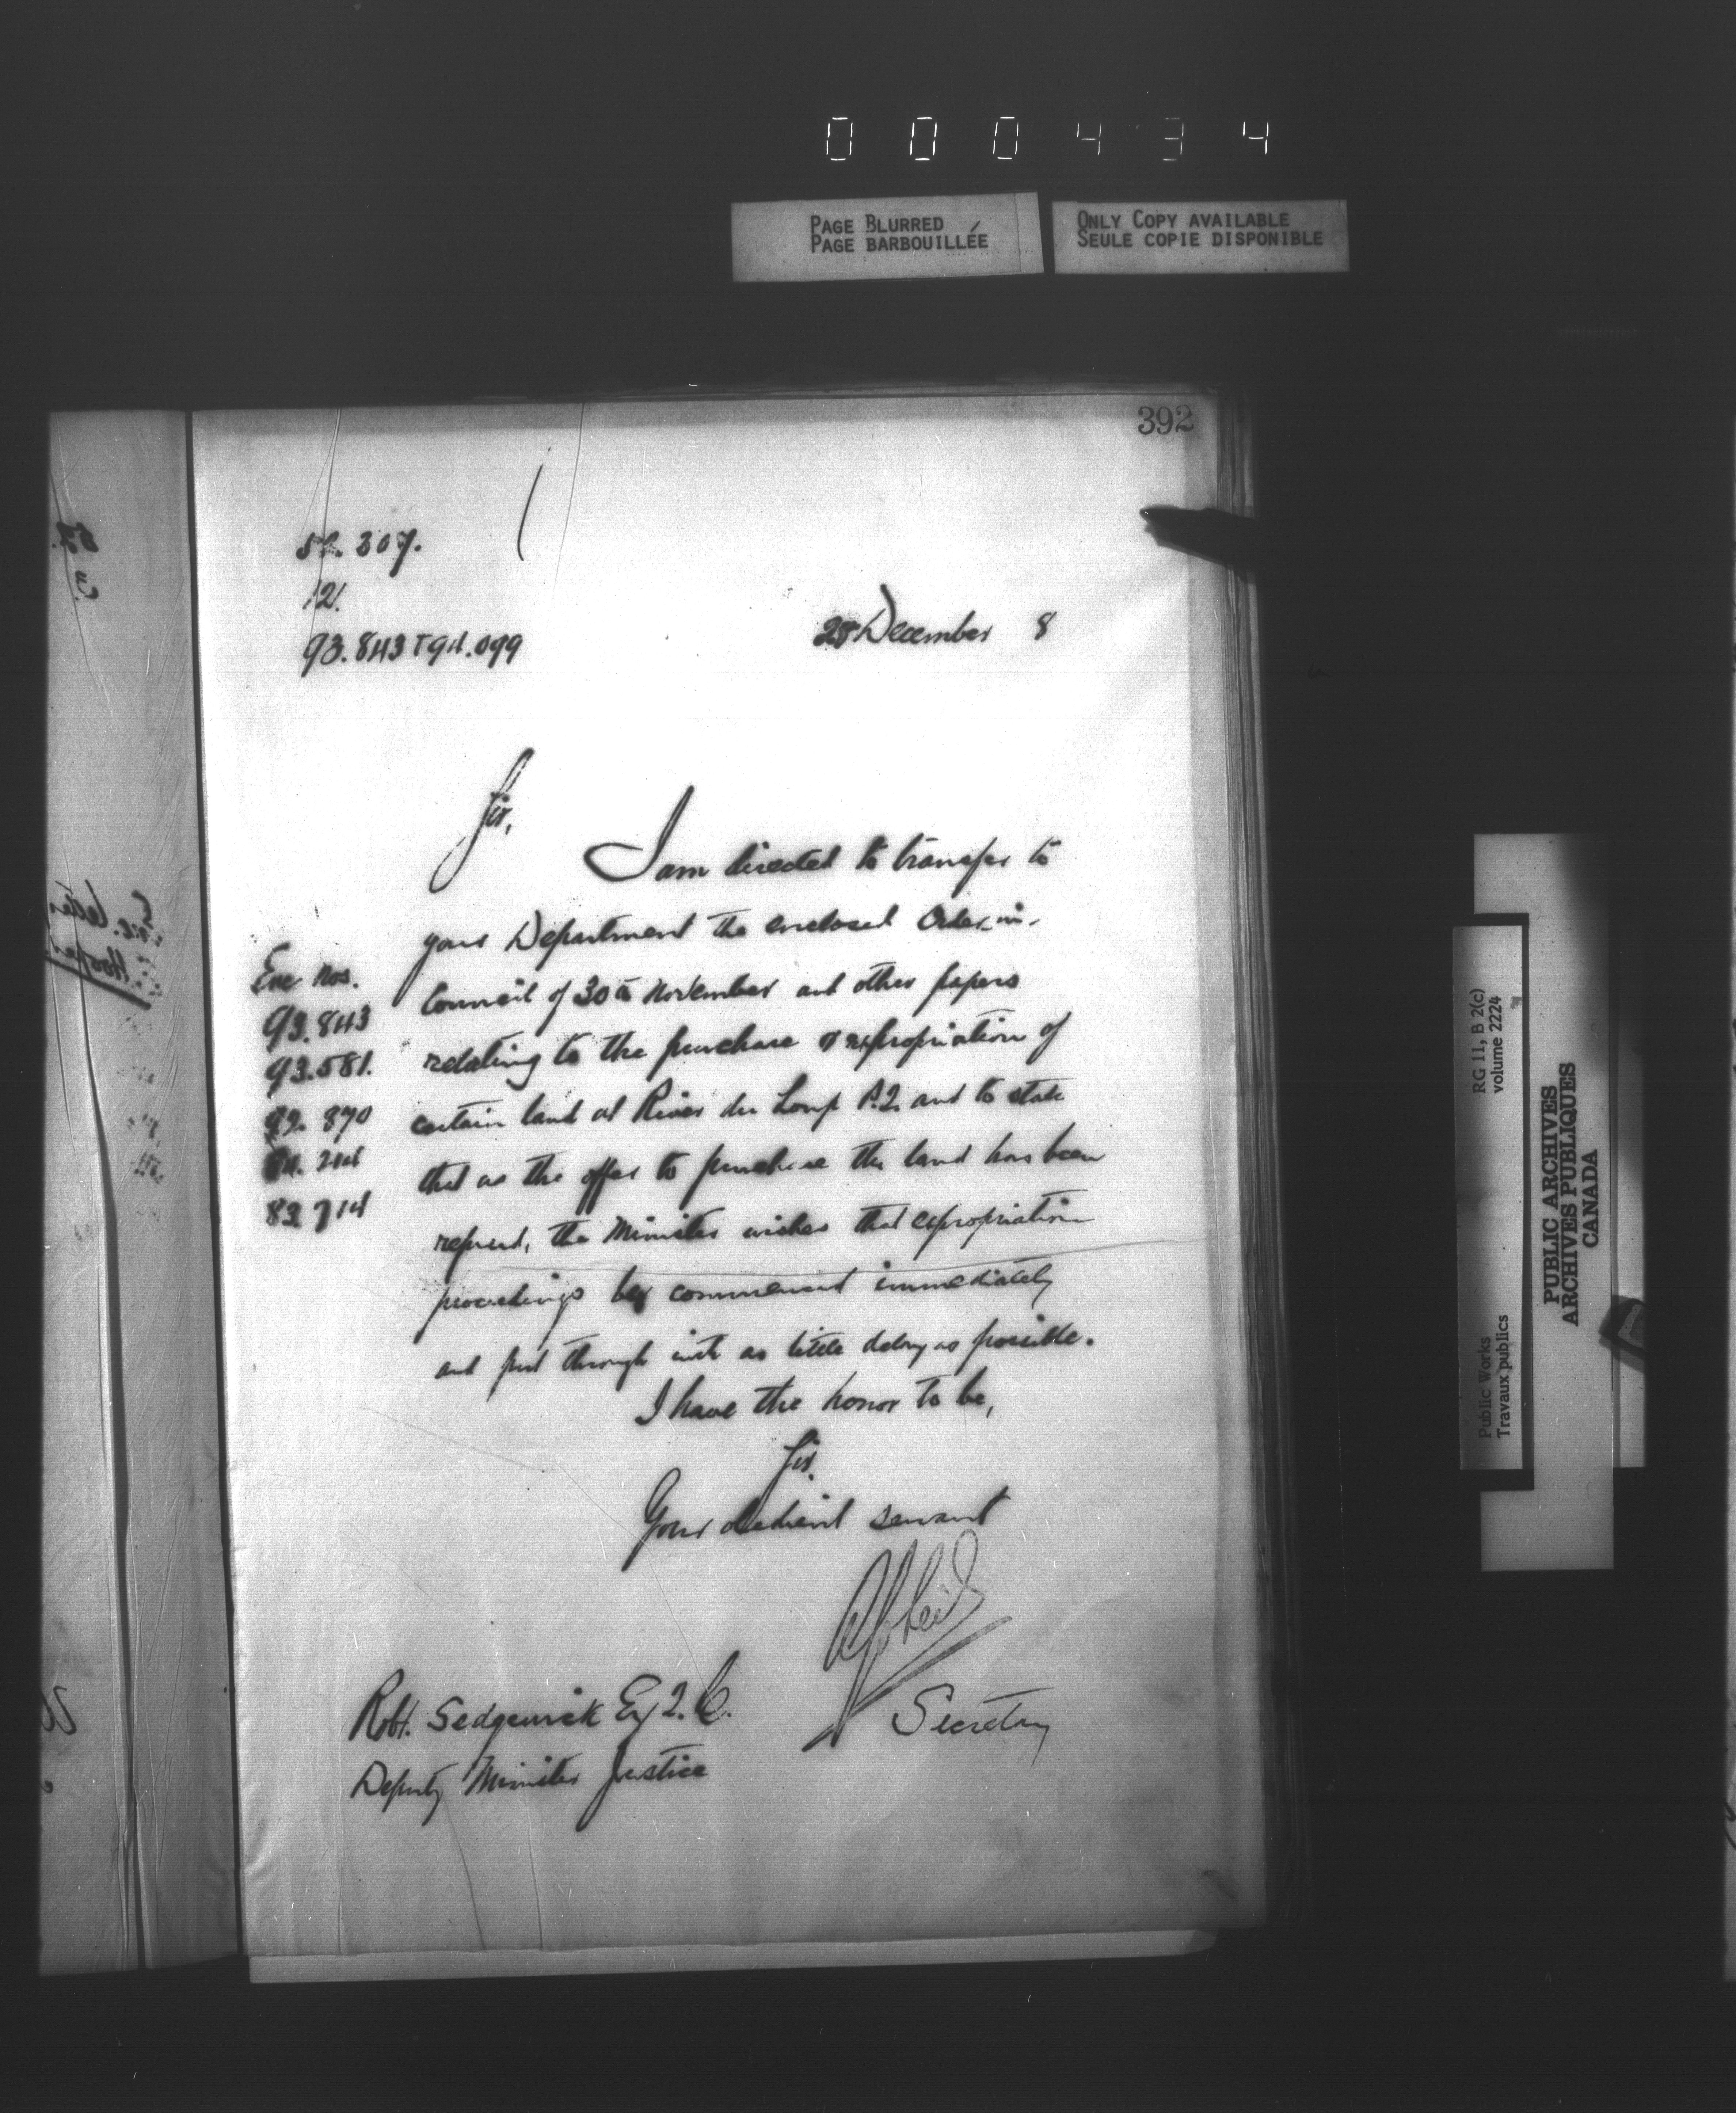 000434
PAGE BLURRED
PAGE BARBOUILLÉE
ONLY COPY AVAILABLE
SEULE COPIE DISPONIBLE
392
307.
121
93.843 + 94.099
28 December 8
Sir,
I am directed to transfer to
your Department the enclosed Order-in-
Council of 30th November and other papers
relating to the purchase or expropriation of
certain land at River du Loup P.Q. and to state
that as the offer to purchase the land has been
refused, the Minister wishes that expropriation
proceedings be commenced immediately
and put through with as little delay as possible.
Enc Nos.
93.843
93.581.
92.870
214
83 714
I have the honor to be,
Sir.
Your obedient servant
Secretary
Robt. Sedgewick Esq Q.C.
Deputy Minister Justice
RG 11, B 2(c)
volume 2224
Public Works
Travaux publics
PUBLIC ARCHIVES
ARCHIVES PUBLIQUES
CANADA